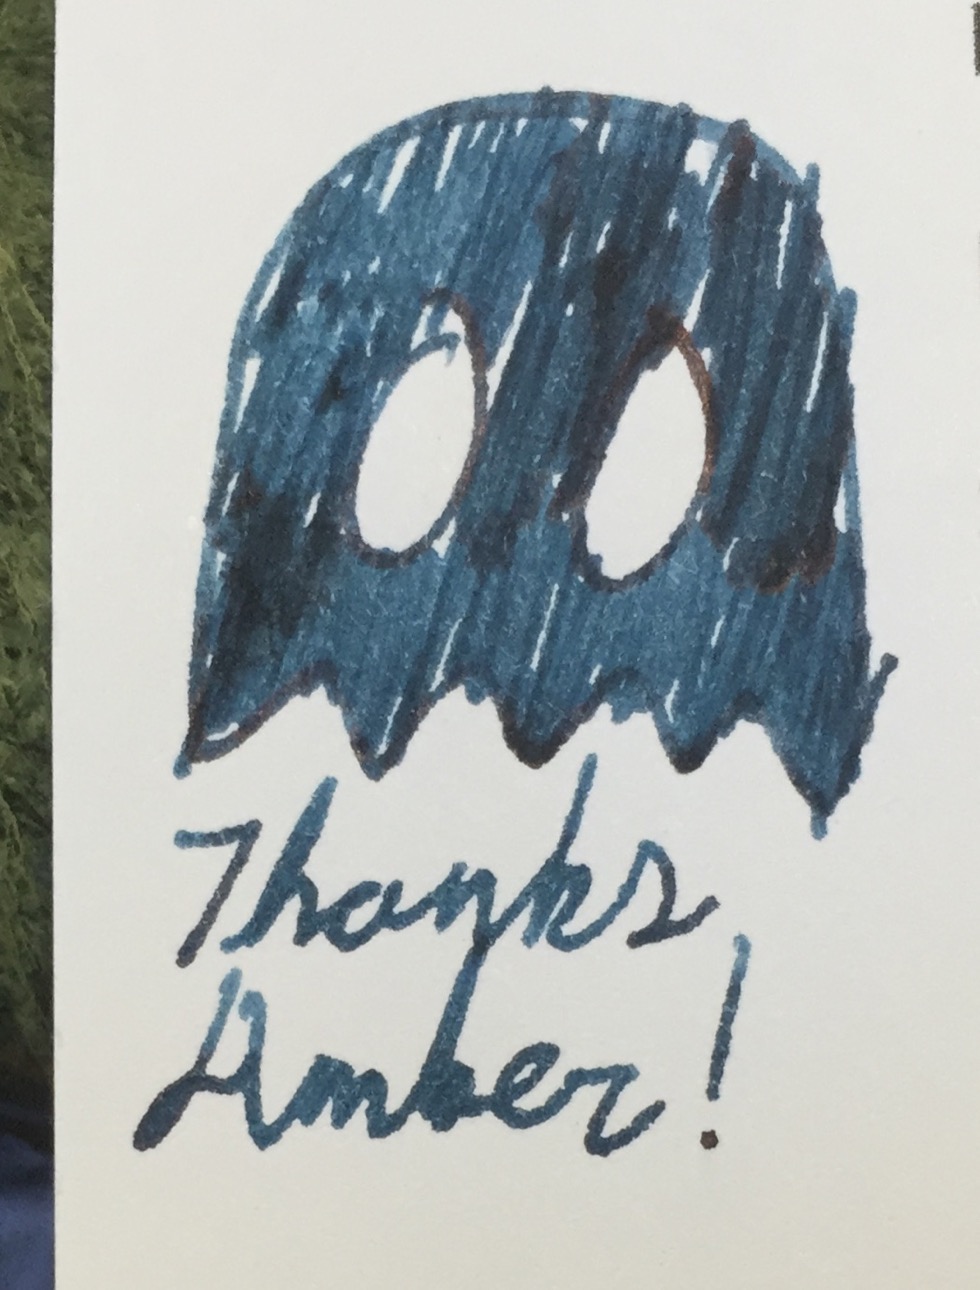 Thanks
Amber!